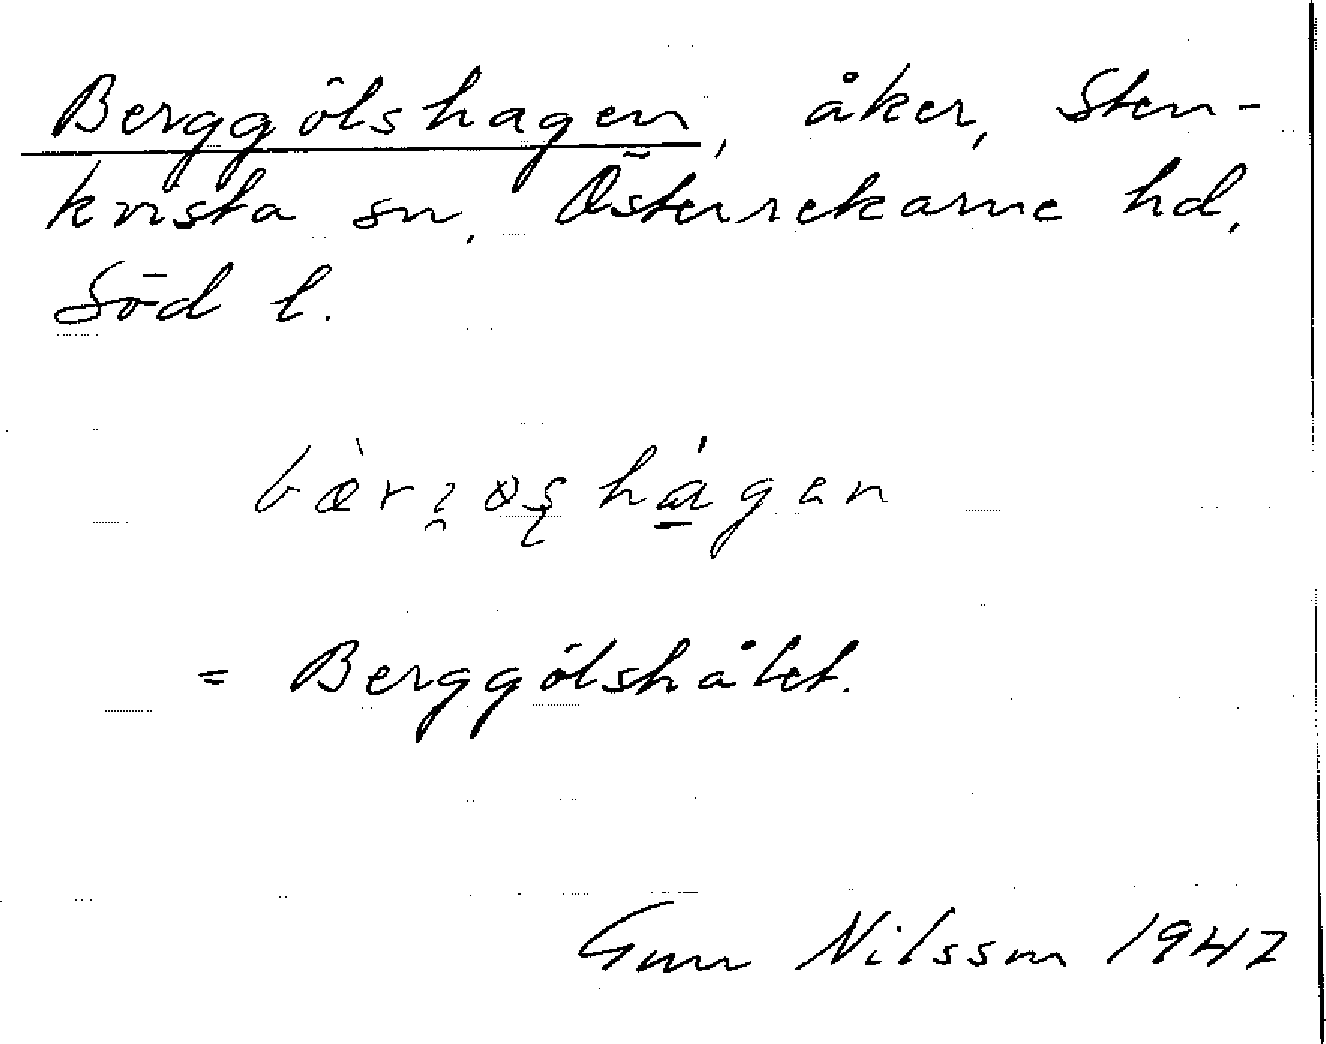 Berggölshagen, åker, Sten-
kvista sn, Österrekarne hd,
Söd l.
= Berggölshålet.
Gun Nilsson 1947